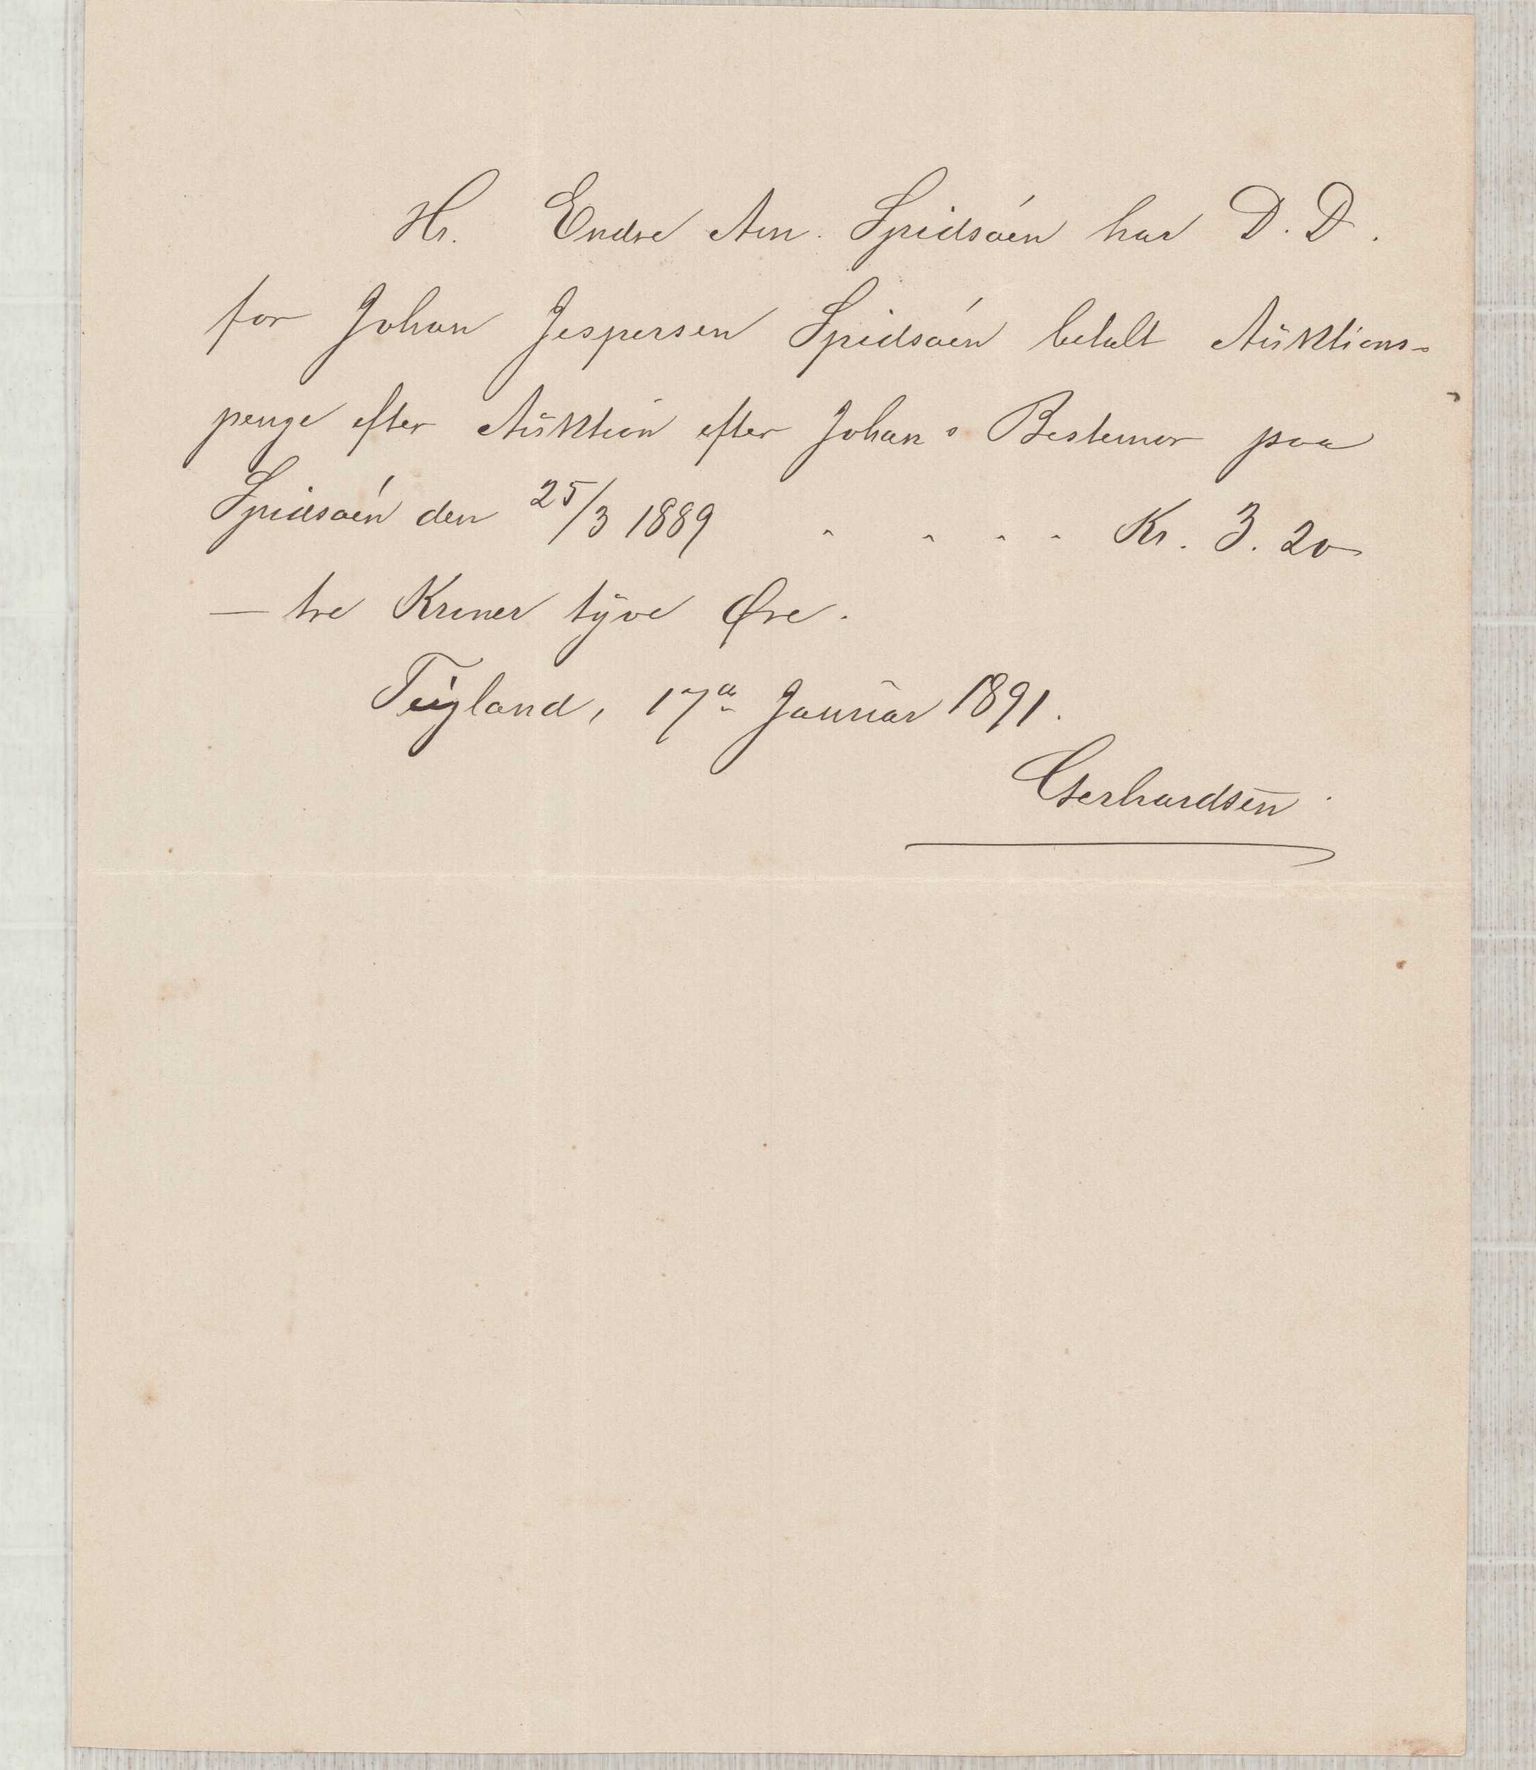 Hr. Endre Am. Spidsøen har D. D.
for Johan Jespersen Spidsøen betalt Auktions-
penge efter Auktion efter Johans Bestemor paa
Spidsøen den 25/3 1889 " " " " Kr. 3. 20
— tre Kroner tyve Øre.
Tugland, 17de Januar 1891.
Gerhardsen